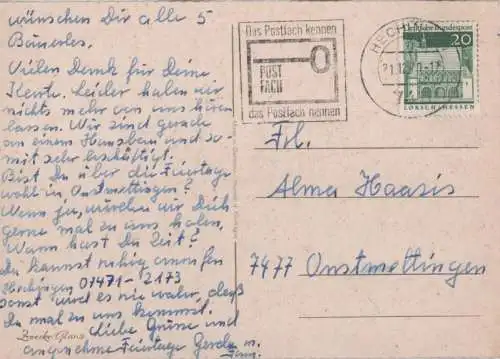 wünschen Dir alle 5
Bäuerles.
Vielen Dank für Deine
Karte. Leider haben wir
nichts mehr von uns hören
lassen. Wir sind gerade
an einem Hausbau und so-
mit sehr beschäftigt.
Bist Du über die Feiertage
wohl in Onstmettingen?
Wenn ja, würden wir Dich
gerne mal zu uns holen,
Wann hast Du Zeit?
Du kannst ruhig anrufen
Hechingen 07471-2173
sonst wird es nie wahr, daß
Du mal zu uns kommst.
Liebe Grüße und
angenehme Feiertage Gerda m.
Fam.
Das Postfach kennen
POST
FACH
das Postfach nennen
HECHIN
Deutsche Bundespost
20
LORSCH/HESSEN
Frl.
Alma Haasis
7477 Onstmettingen